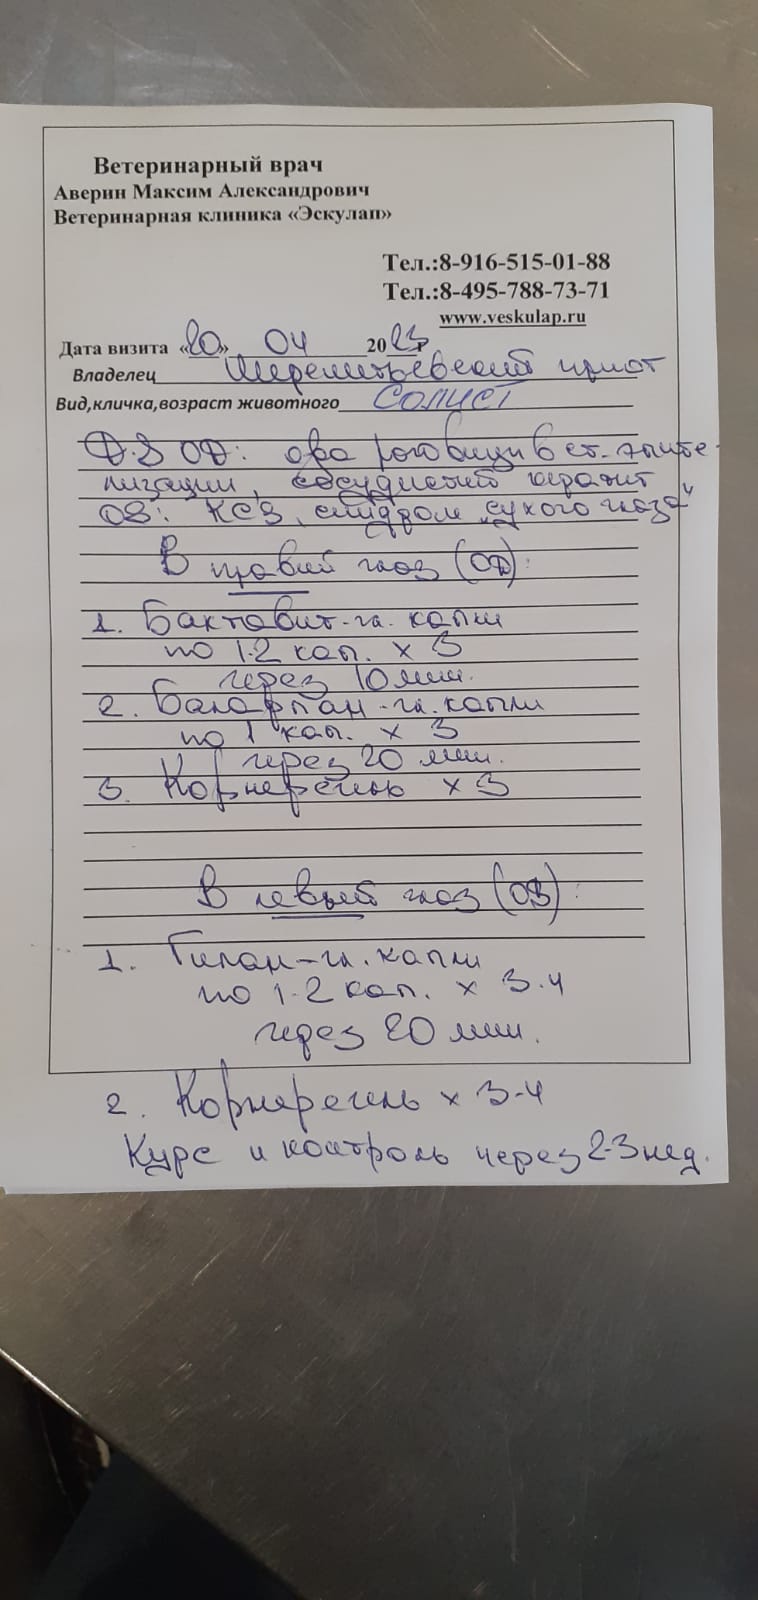 Ветеринарный врач
Аверин Максим Александрович
Ветеринарная клиника «Эскулап»
Тел.:8-916-515-01-88
Тел.:8-495-788-73-71
www.veskulap.ru
Дата визита «20» 04 2023г
Владелец Шереметьевский приют
Вид,кличка,возраст животного Солист
D.S OD: язва роговицы в ст. эпите-
лизации, сосудистый кератит
OS: КСЗ, синдром „сухого глаза"
В правый глаз (OD):
1. Бактавит-гл. капли
по 1-2 кап. х 3
через 10 мин.
2. Баларпан-гл. капли
по 1 кап. х 3
через 20 мин.
3. Корнерегель х 3
В левый глаз (OS):
1. Гилан-гл. капли
по 1-2 кап. х 3-4
через 20 мин.
2. Корнерегель х 3-4
Курс и контроль через 2-3 нед.